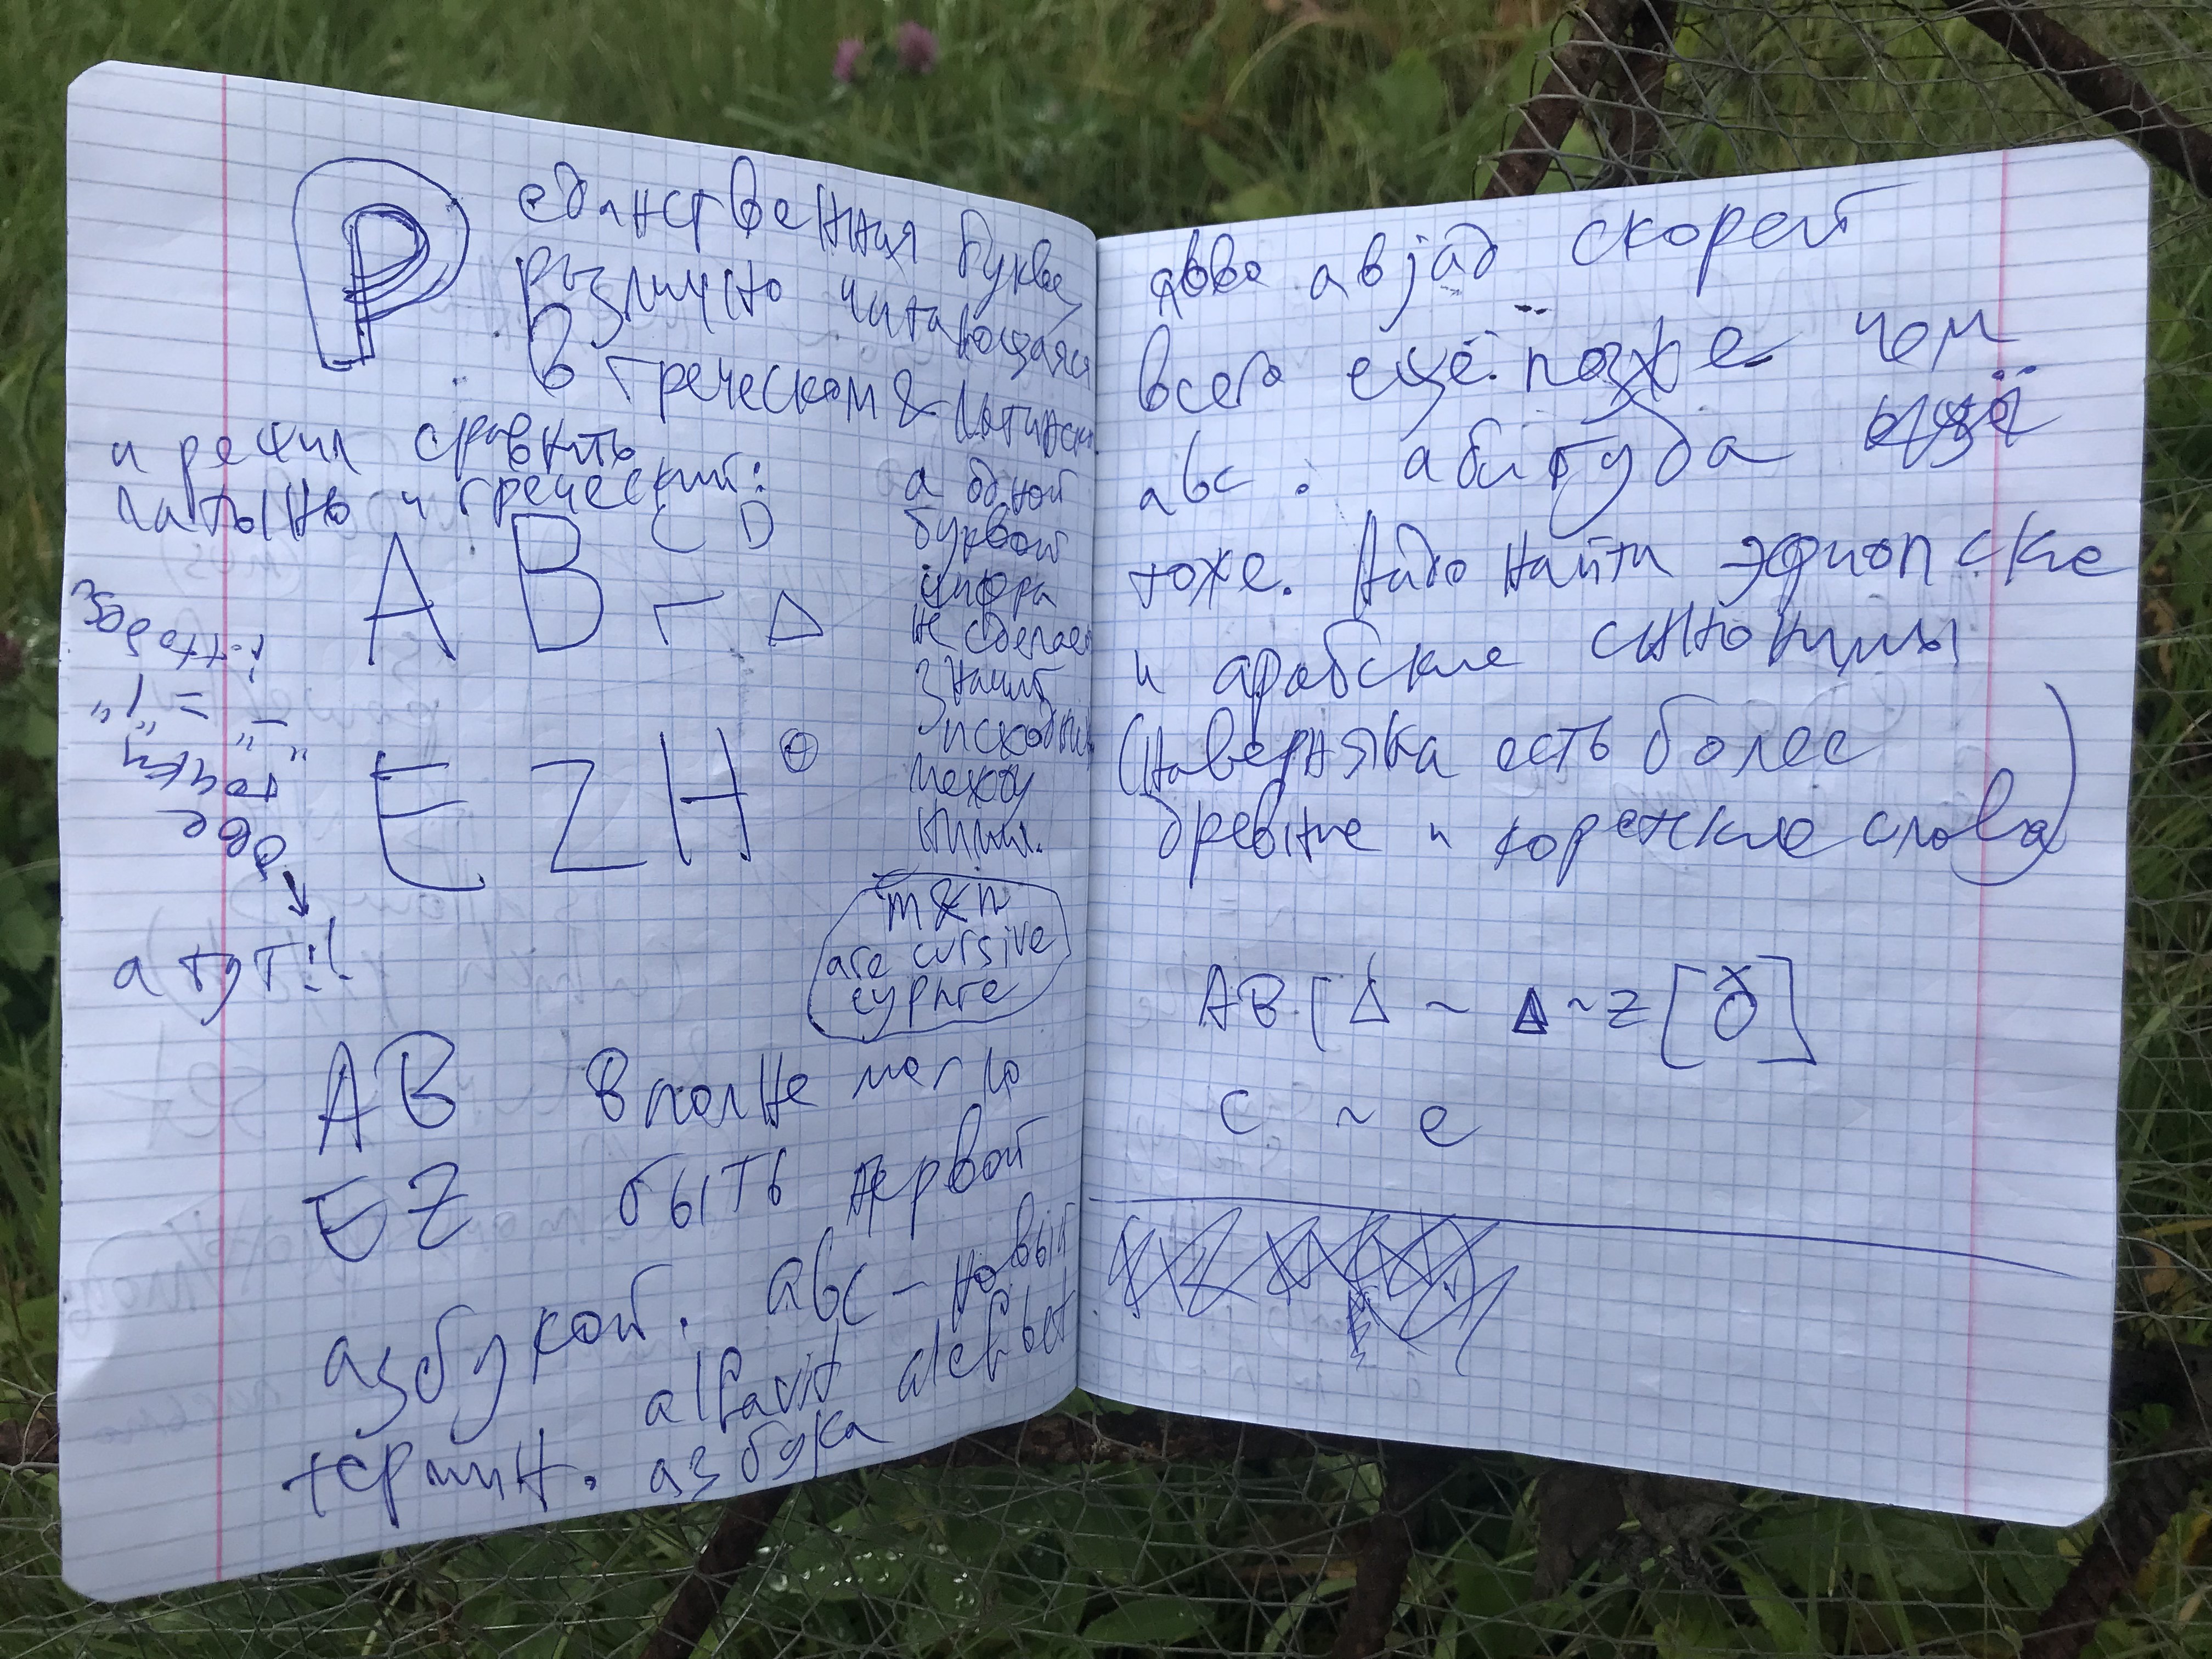 P
единственная буква,
различно читающаяся
в греческом &
и решил сравнить
латынь и греческий:
A B C D
Г Δ
E Z H ⊕
а одной
буквой
цифра
не сделаес
значит
искод
между
ними.
m&n
are cursive
cyphre
две
точки
"_" = "1"
а тут!:
AB вполне могло
EZ быть первой
азбукой. abc – новый
термин. alfavit alefbet.
азбука
авјад скорей
всего ещё позже чем
abc : абугуда ещё
тоже. Надо найти эфиопские
и арабские синонимы
(наверняка есть более
древние и коренные слова)
AB Γ Δ ~ Δ ~ Z [ð]
c ~ e